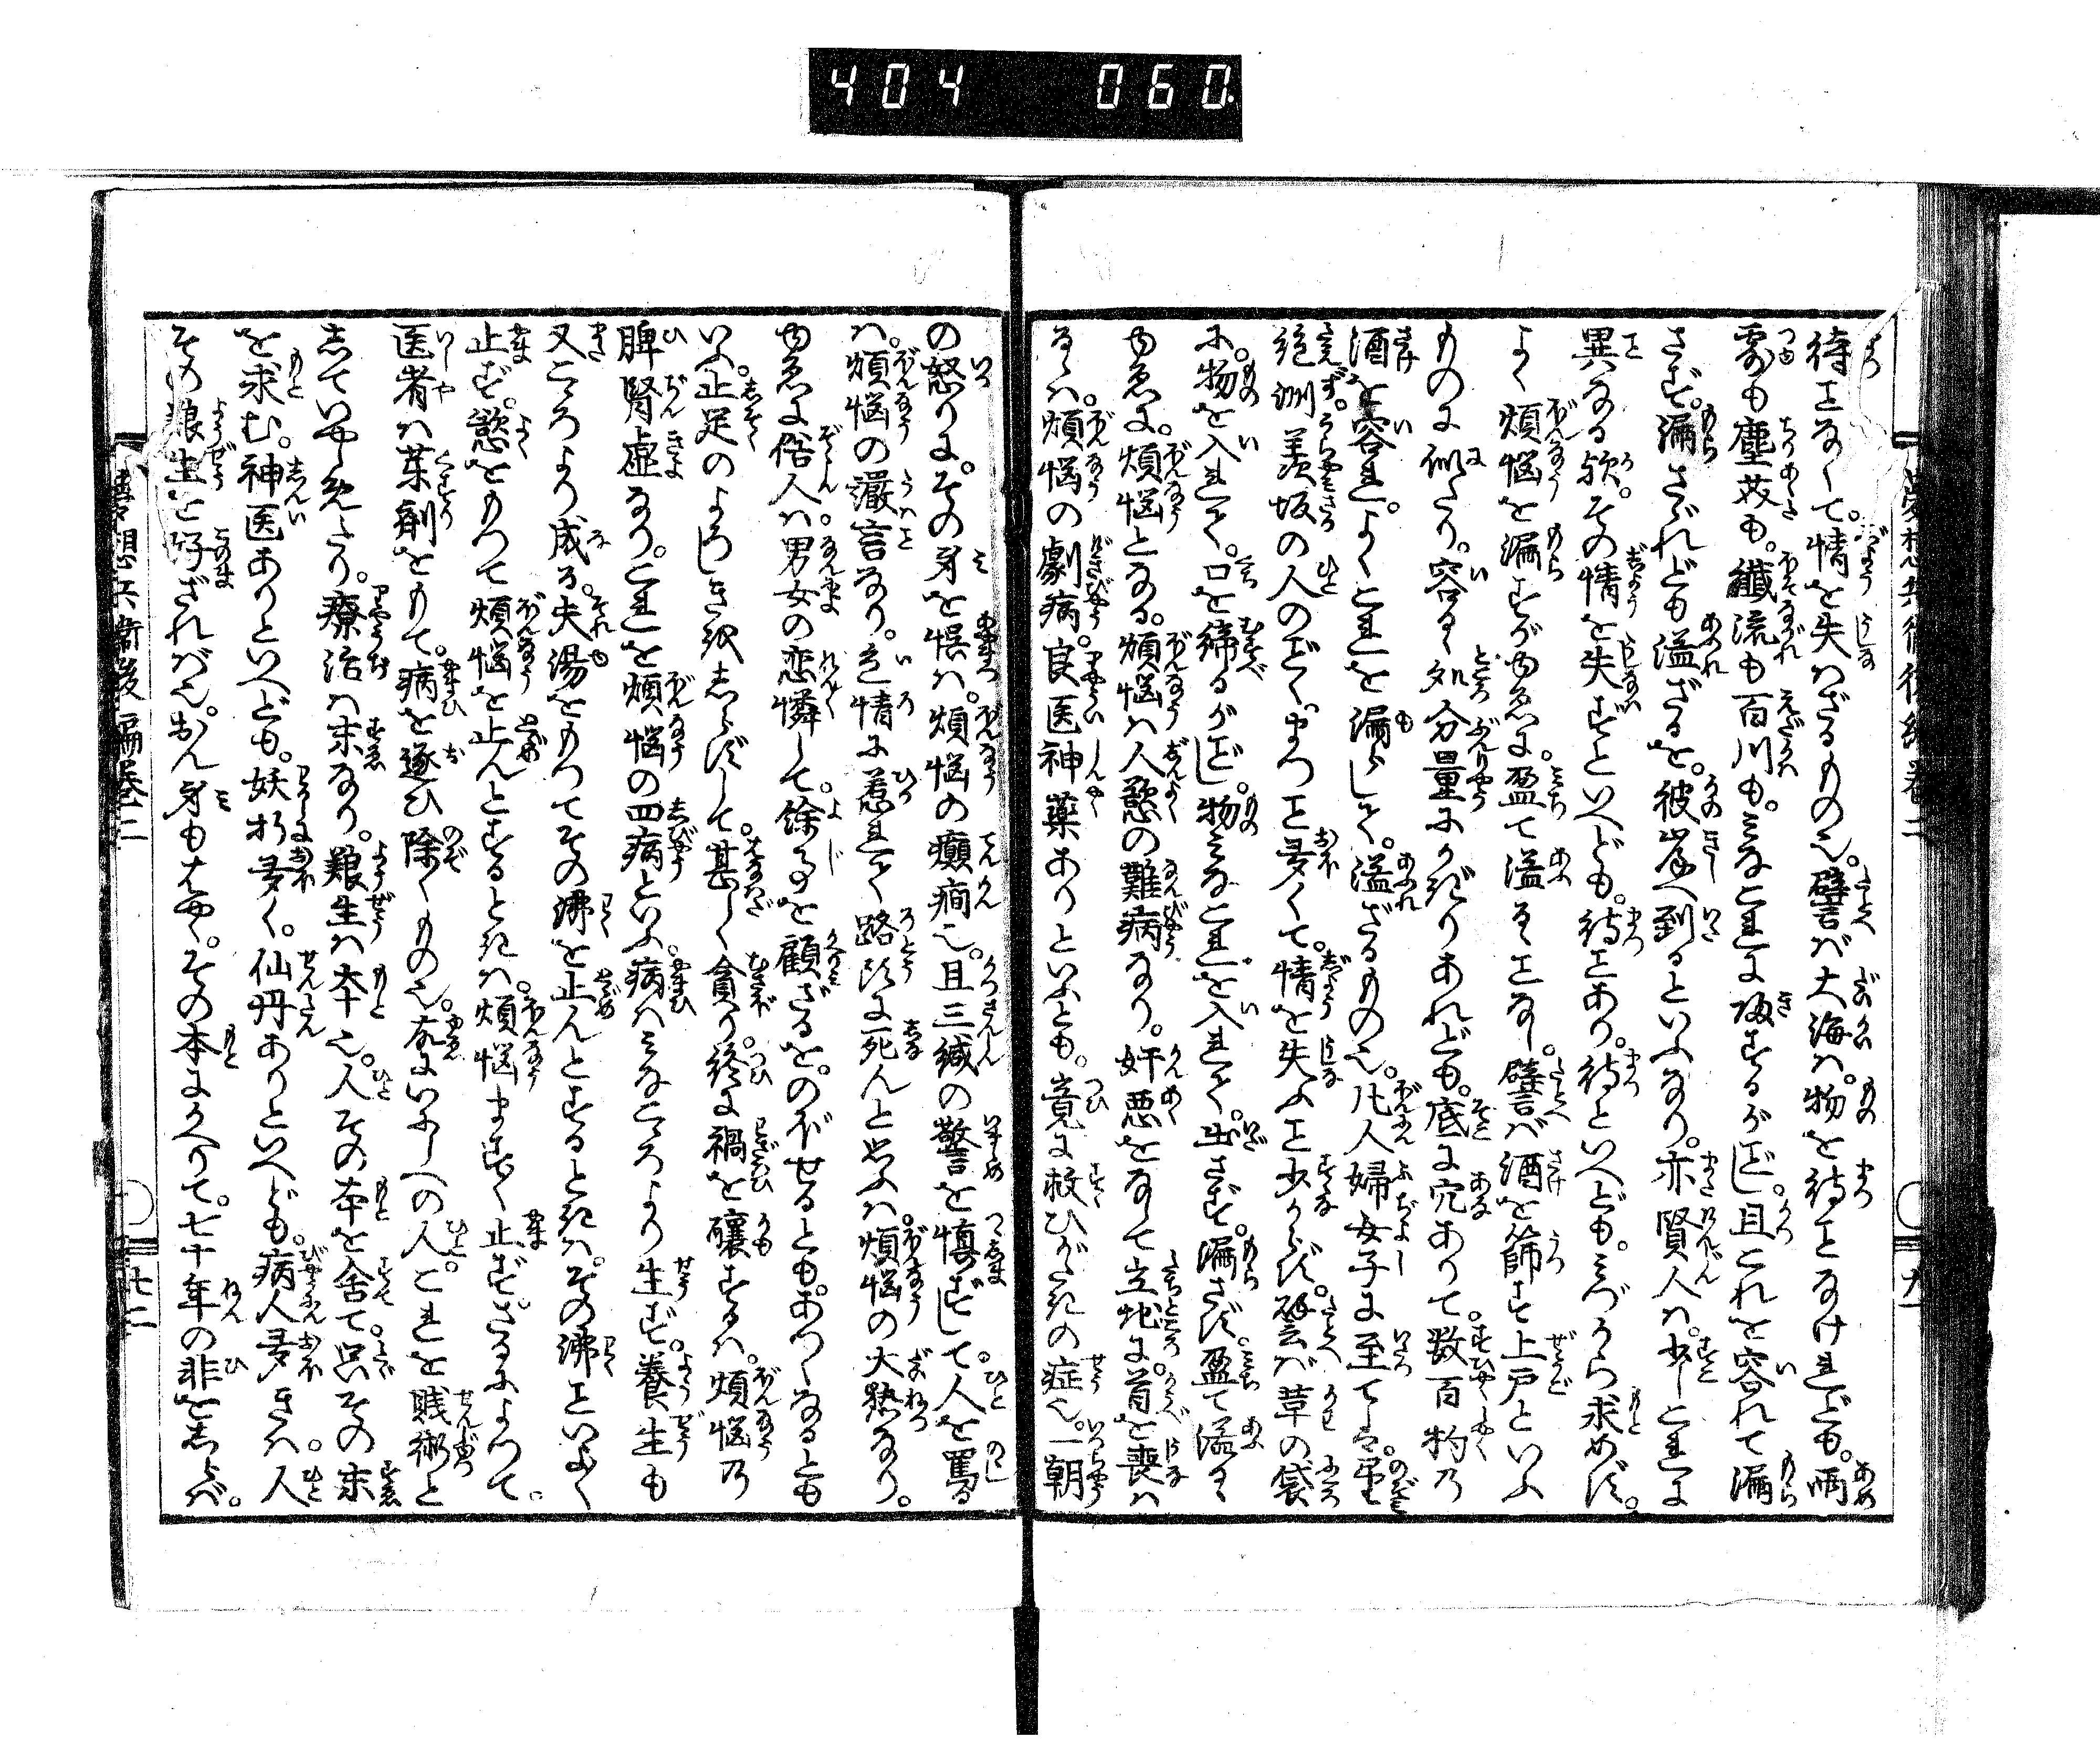 404 060
夢想兵衛後編巻二
待ヿなくて。情を失はざるもの也。譬ば大海は。物を待ヿなけれども。雨
露も塵芥も。纖流も百川も。みなこれに帰するが如し。且これを容れて漏
さず。漏さゞれども溢ざるを。彼岸へ到るといふなり。亦賢人は。少しくこれに
異なる歟。その情を失ずといへども。待ヿあり。待といへども。みづから求めず。
よく煩悩を漏すがゆゑに。盈て溢るゝヿなし。譬ば酒を篩す上戸といふ
ものに似たり。容るゝ処分量にかぎりあれども。底に穴ありて。数百杓の
酒を容れ。よくこれを漏らして。溢ざるもの也。凡人婦女子に至ては。望
絶ず。羨坂の人のごく。まつヿ多くて。情を失ふヿ少からず。譬ば草の袋
に。物を入れて。口を締るが如し。物みなこれを入れて。出さず。漏さず。盈て溢るゝ
ゆゑに。煩悩となる。煩悩は人慾の難病なり。奸悪をなして立地に。首を喪は
るゝは。煩悩の劇病。良医神薬ありといふとも。竟に救ひがたきの症也。一朝
の怒りに。その身を悞は。煩悩の癲癇也。且三緘の警を慎ずして。人を罵る
は。煩悩の譫言なり。色情に惹れて路頭に死んと思ふは。煩悩の大熱なり。
ゆゑに俗人は男女の恋憐して。餘事を顧ざるを。のぼせるとも。あつくなるとも
いふ。止足のよろしきを知らずして。甚しく貪り。終に禍を釀するは。煩悩乃
脾腎虚なり。これを煩悩の四病といふ。病はみなこゝろより生ず。養生も
又こゝろより成る。夫湯をもつてその沸を止んとするときは。その沸ヿいよく
止ず。慾をもつて煩悩を止んとするときは。煩悩ますく止ず。ざるによつて。
医者は薬劑をもて。病を逐ひ除くもの也。故にいにしへの人。これを賎術と
していやしめたり。療治は末なり。養生は本也。人その本を舍て。只その末
を求む。神医ありといへども。妖抐多く。仙丹ありといへども。病人多きは。人
その養生を好ざれば也。おん身もはやく。その本にかへりて。七十年の非をしらば。
夢想兵衛後編巻二
廿二